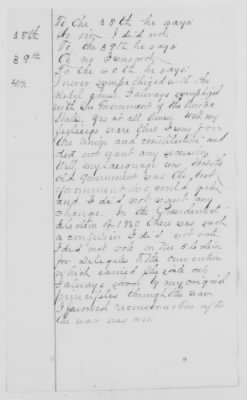 To the 38th he says
38th No sir I did not
To the 39th he says
39th Oh no I was not
To the 40th he says:
40th I never sympathized with the
Rebel cause I always sympathized
with the Government of the United
States, yes at all times, Well my
feelings were that I was for
the Union and constitution and
did not want any secession
Well, my language was that the
old government was the best
government we could get
and I did not want any
change. In the Presidential
Election of 1860 there was such
a confusion I did not vote,
I did not vote in the Election
for Delegates to the convention
which carried the state out
I always stood by my original
principles through the war
I favored reconstruction after
the war was over